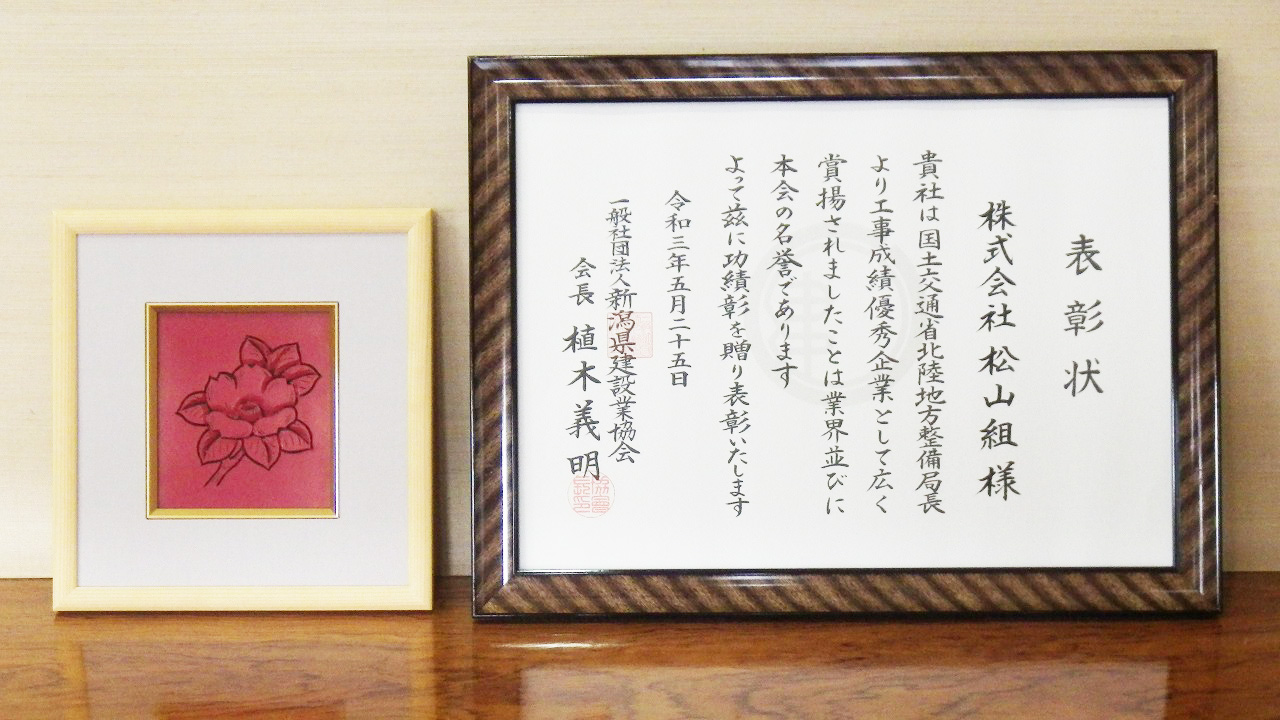 表彰状
株式会社 松山組 様
貴社は国土交通省北陸地方整備局長
より工事成績優秀企業として広く
賞揚されましたことは業界並びに
本会の名誉であります
よって茲に功績彰を贈り表彰いたします
令和三年五月二十五日
一般社団法人新潟県建設業協会
会長 植木義明